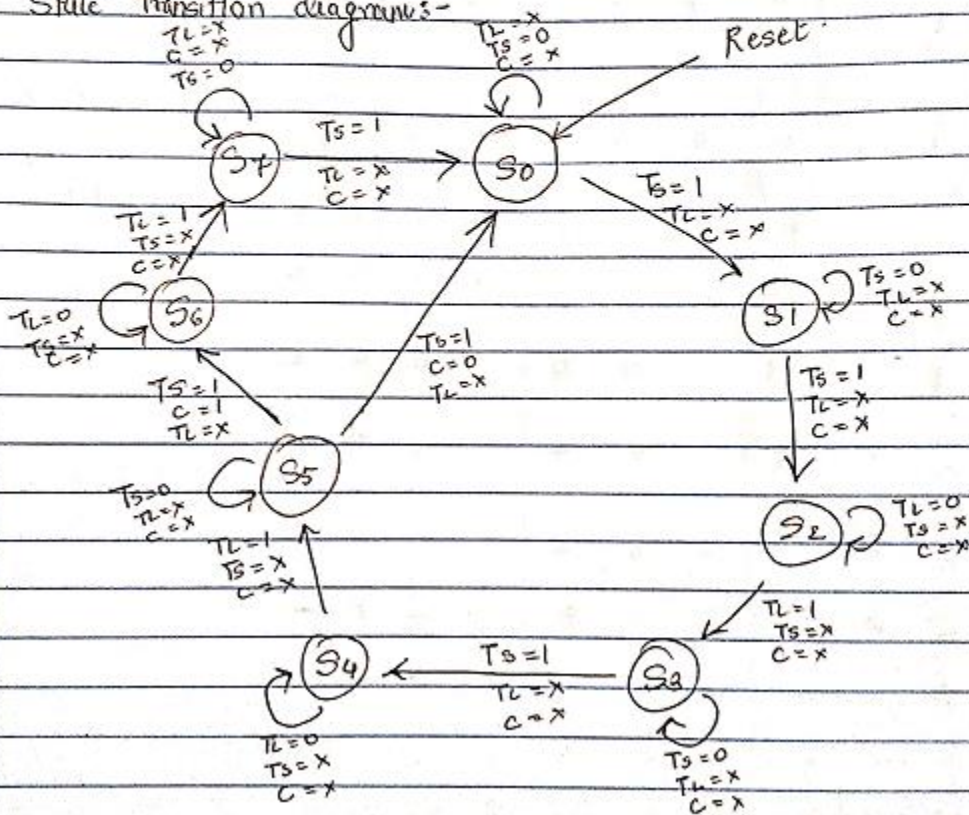 State Transition diagrams:-
TL=x
C=x
TS=0
TL=x
TS=0
C=x
Reset
S7
TS=1
TL=x
C=x
S0
TS=1
TL=x
C=x
TL=1
TS=x
C=x
S6
TL=0
TS=x
C=x
S1
TS=0
TL=x
C=x
TS=1
C=0
TL=x
TS=1
TL=x
C=x
TS=1
C=1
TL=x
S5
TS=0
TL=x
C=x
S2
TL=0
TS=x
C=x
TL=1
TS=x
C=x
TL=1
TS=x
C=x
S4
TS=1
TL=x
C=x
S3
TL=0
TS=x
C=x
TS=0
TL=x
C=x